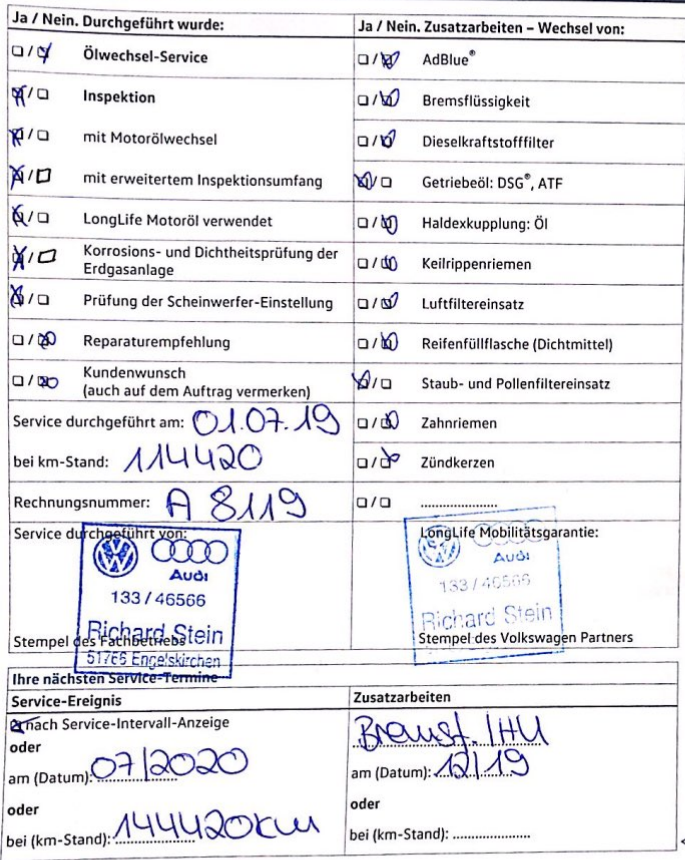 Ja / Nein. Durchgeführt wurde:
Ölwechsel-Service
Inspektion
mit Motorölwechsel
mit erweitertem Inspektionsumfang
LongLife Motoröl verwendet
Korrosions- und Dichtheitsprüfung der
Erdgasanlage
Prüfung der Scheinwerfer-Einstellung
Reparaturempfehlung
Kundenwunsch
(auch auf dem Auftrag vermerken)
Service durchgeführt am: 01.07.19
bei km-Stand: 114420
Rechnungsnummer: A 8119
Service durchgeführt von:
Audi
133 / 46566
Richard Stein
51766 Engelskirchen
Stempel des Fachbetriebs
Ja / Nein. Zusatzarbeiten – Wechsel von:
AdBlue®
Bremsflüssigkeit
Dieselkraftstofffilter
Getriebeöl: DSG®, ATF
Haldexkupplung: Öl
Keilrippenriemen
Luftfiltereinsatz
Reifenfüllflasche (Dichtmittel)
Staub- und Pollenfiltereinsatz
Zahnriemen
Zündkerzen
....................
LongLife Mobilitätsgarantie:
Audi
133 / 46566
Richard Stein
Stempel des Volkswagen Partners
Ihre nächsten Service-Termine
Service-Ereignis
nach Service-Intervall-Anzeige
oder
am (Datum): 07/2020
oder
bei (km-Stand): 144420km
Zusatzarbeiten
Bremsf. / HU
am (Datum): 12/19
oder
bei (km-Stand): ....................